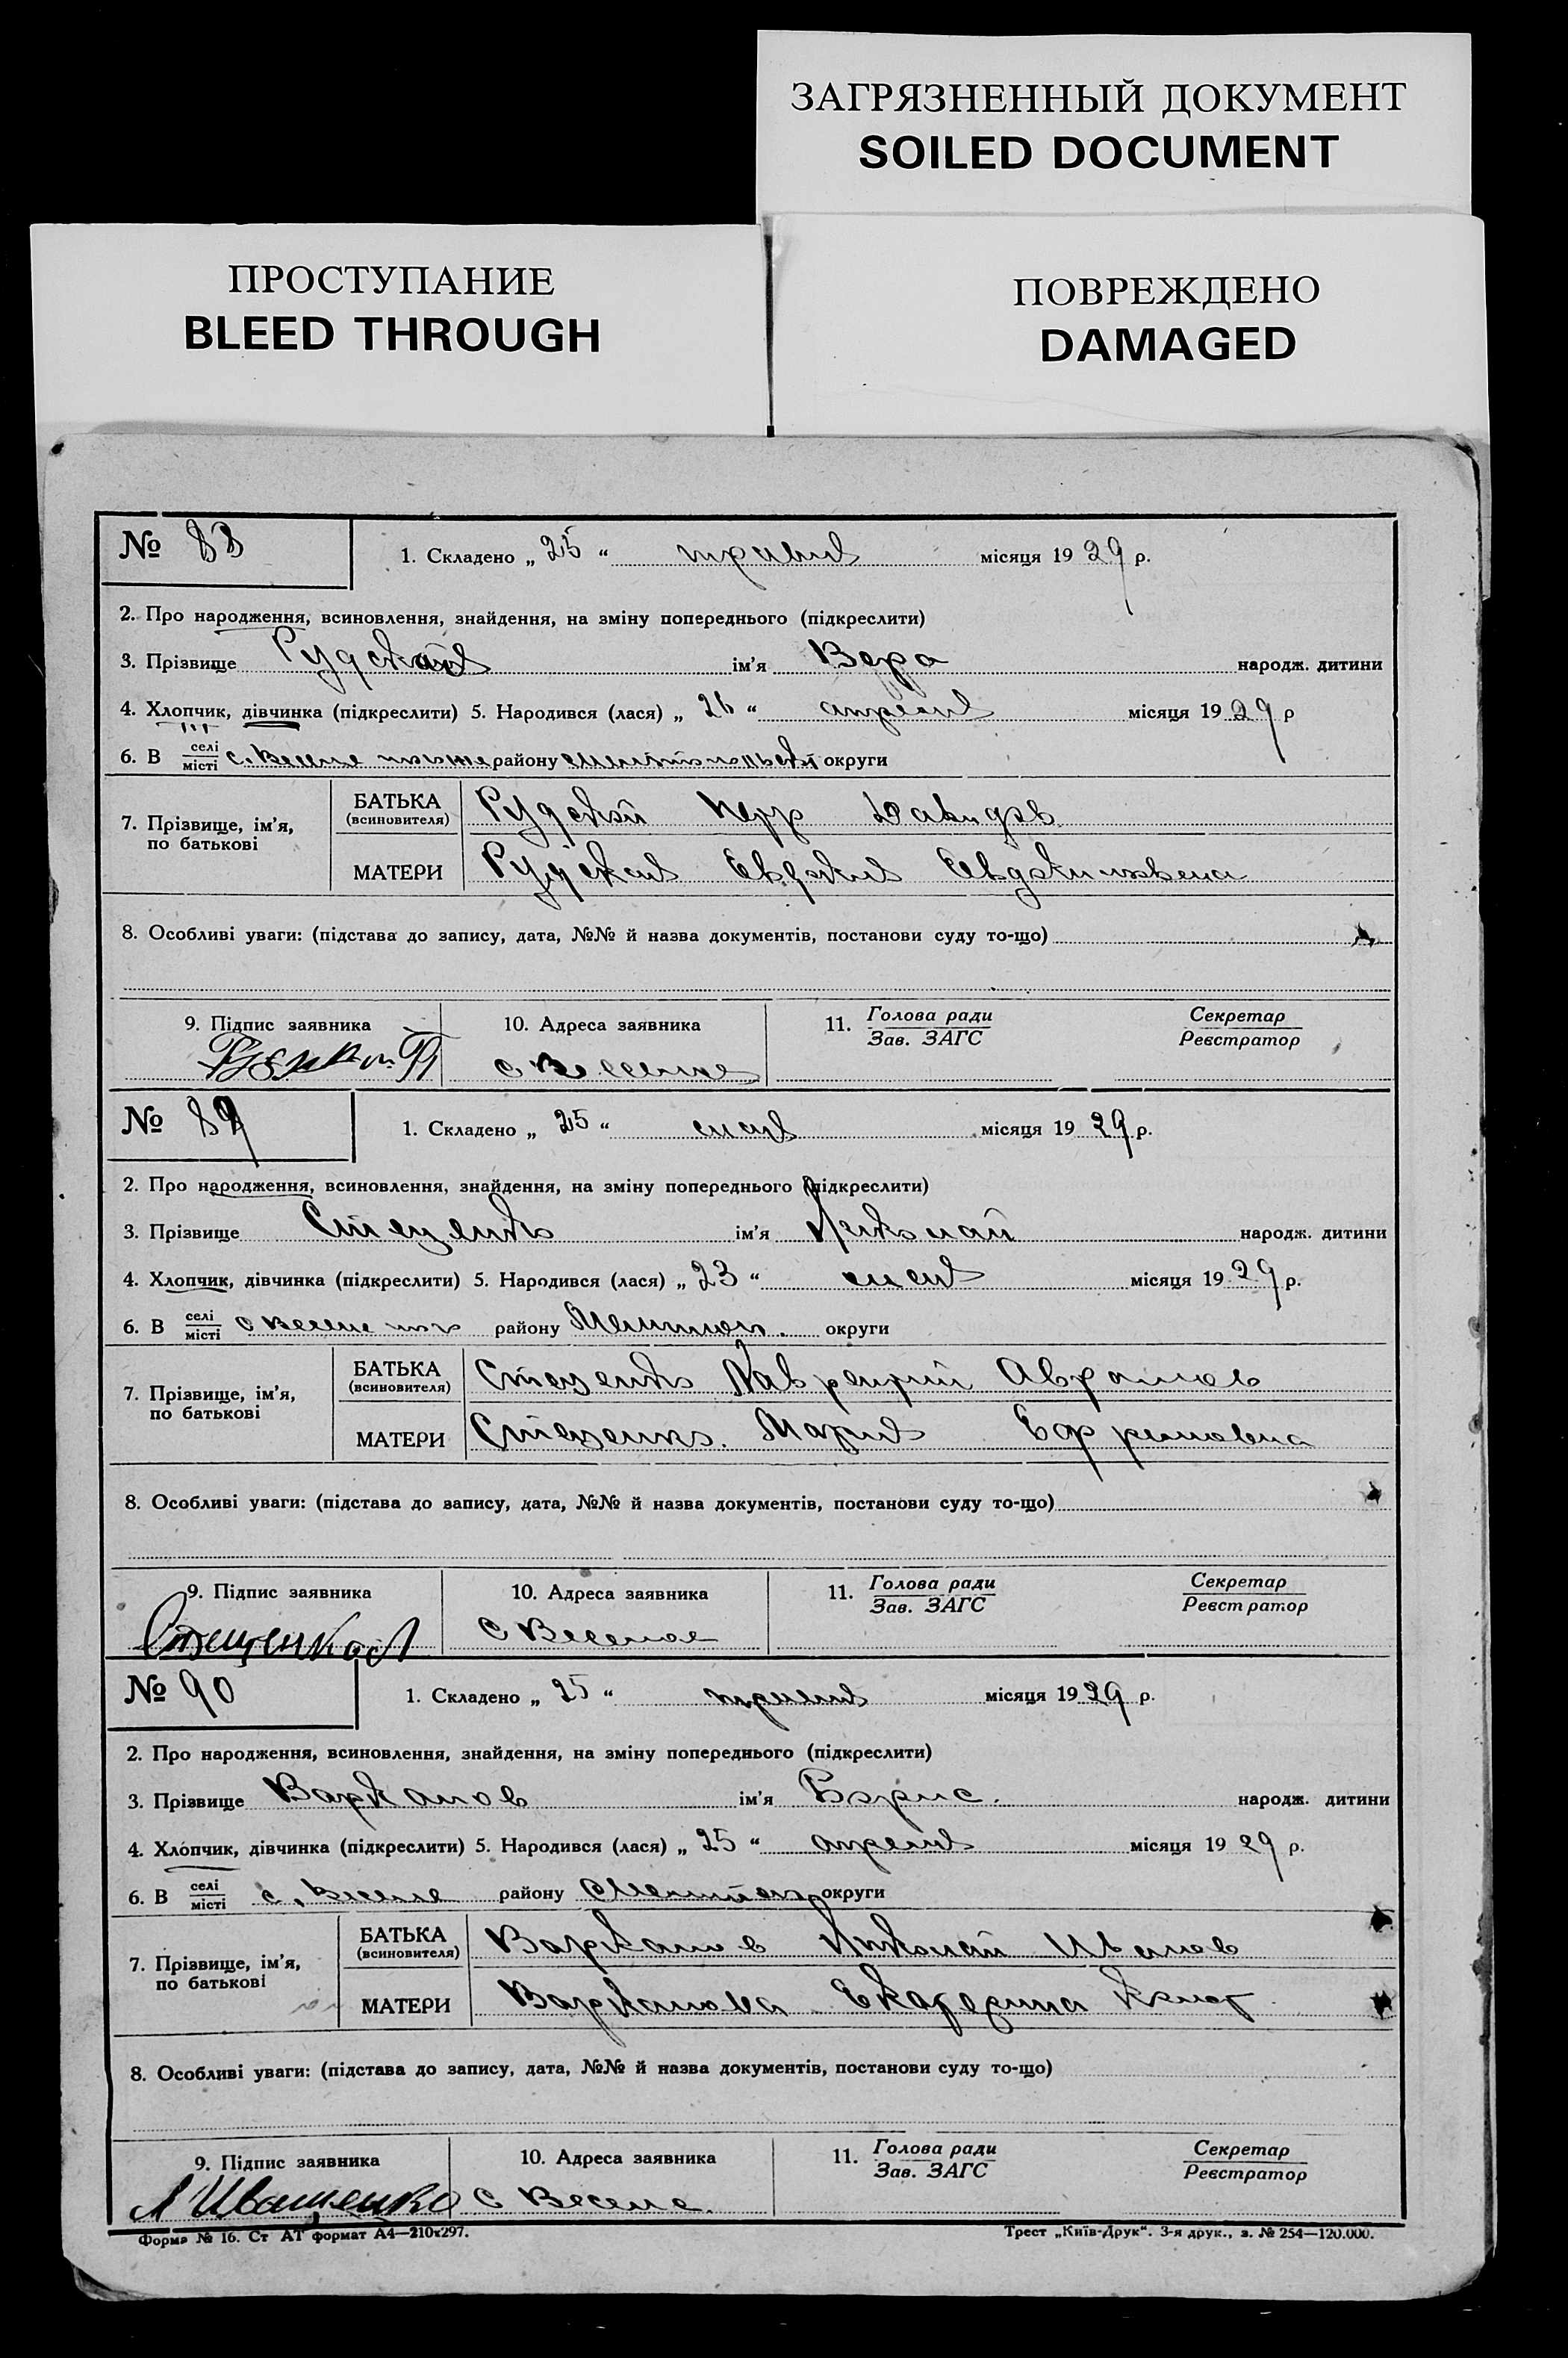 ЗАГРЯЗНЕННЫЙ ДОКУМЕНТ
SOILED DOCUMENT
ПРОСТУПАНИЕ
BLEED THROUGH
ПОВРЕЖДЕНО
DAMAGED
№ 88
1. Складено „ 25 “ травня місяця 19 29 р.
2. Про народження, всиновлення, знайдення, на зміну попереднього (підкреслити)
3. Прізвище Рудская ім'я Вера народж. дитини
4. Хлопчик, дівчинка (підкреслити) 5. Народився (лася) „ 26 “ апреля місяця 19 29 р
6. В селі/місті с. Веселе району округи
7. Прізвище, ім'я, по батькові
БАТЬКА (всиновителя) Рудской Давидов
МАТЕРИ Рудская Евдокия
8. Особливі уваги: (підстава до запису, дата, №№ й назва документів, постанови суду то-що)
9. Підпис заявника 10. Адреса заявника 11. Голова ради/Зав. ЗАГС Секретар/Реєстратор
с Веселое
№ 89
1. Складено „ 25 “ мая місяця 19 29 р.
2. Про народження, всиновлення, знайдення, на зміну попереднього (підкреслити)
3. Прізвище Стеценко ім'я Николай народж. дитини
4. Хлопчик, дівчинка (підкреслити) 5. Народився (лася) „ 23 “ мая місяця 19 29 р.
6. В селі/місті с Веселе району Мелитоп. округи
7. Прізвище, ім'я, по батькові
БАТЬКА (всиновителя) Стеценко Лаврентий Аврамов
МАТЕРИ Стеценко Мария Ефремовна
8. Особливі уваги: (підстава до запису, дата, №№ й назва документів, постанови суду то-що)
9. Підпис заявника 10. Адреса заявника 11. Голова ради/Зав. ЗАГС Секретар/Реєстратор
Стеценко Л с Веселое
№ 90
1. Складено „ 25 “ травня місяця 19 29 р.
2. Про народження, всиновлення, знайдення, на зміну попереднього (підкреслити)
3. Прізвище Варканов ім'я Борис. народж. дитини
4. Хлопчик, дівчинка (підкреслити) 5. Народився (лася) „ 25 “ апреля місяця 19 29 р.
6. В селі/місті с. Веселе району Мелитоп округи
7. Прізвище, ім'я, по батькові
БАТЬКА (всиновителя) Варканов Николай Иванов
МАТЕРИ Варканова Екатерина
8. Особливі уваги: (підстава до запису, дата, №№ й назва документів, постанови суду то-що)
9. Підпис заявника 10. Адреса заявника 11. Голова ради/Зав. ЗАГС Секретар/Реєстратор
Иващенко с Веселе.
Форма № 16. Ст АТ формат А4—210х297. Трест „Київ-Друк“. 3-я друк., з. № 254—120.000.